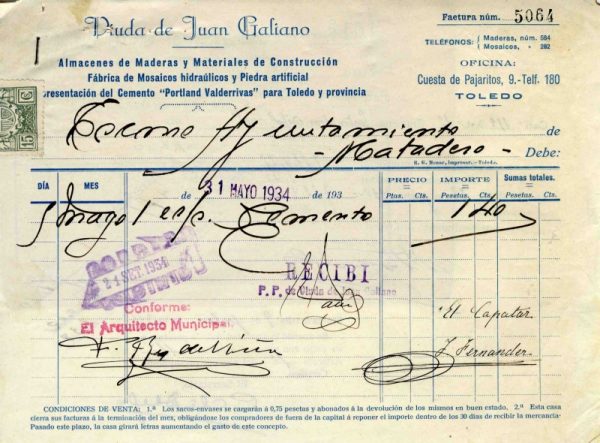 Viuda de Juan Galiano
Factura núm. 5064
Almacenes de Maderas y Materiales de Construcción
Fábrica de Mosaicos hidráulicos y Piedra artificial
presentación del Cemento "Portland Valderrivas" para Toledo y provincia
TELÉFONOS: Maderas, núm. 584
Mosaicos, » 292
OFICINA:
Cuesta de Pajaritos, 9.-Telf. 180
TOLEDO
15 C
Excmo Ayuntamiento de
- Matadero - Debe:
DÍA MES de 31 MAYO 1934 de 193
PRECIO IMPORTE Sumas totales.
Ptas. Cts. Pesetas. Cts. Pesetas. Cts.
5 Mayo 1 Cemento 1 40
21 SET. 1934
RECIBI
P. P. de Viuda de Juan Galiano
Conforme:
El Arquitecto Municipal,
El Capataz
J. Fernander
CONDICIONES DE VENTA: 1.ª Los sacos-envases se cargarán á 0,75 pesetas y abonados á la devolución de los mismos en buen estado. 2.ª Esta casa
cierra sus facturas á la terminación del mes, obligándose los compradores de fuera de la capital á reponer el importe dentro de los 30 días de recibir la mercancía-
Pasado este plazo, la casa girará letras aumentando el gasto de este concepto.